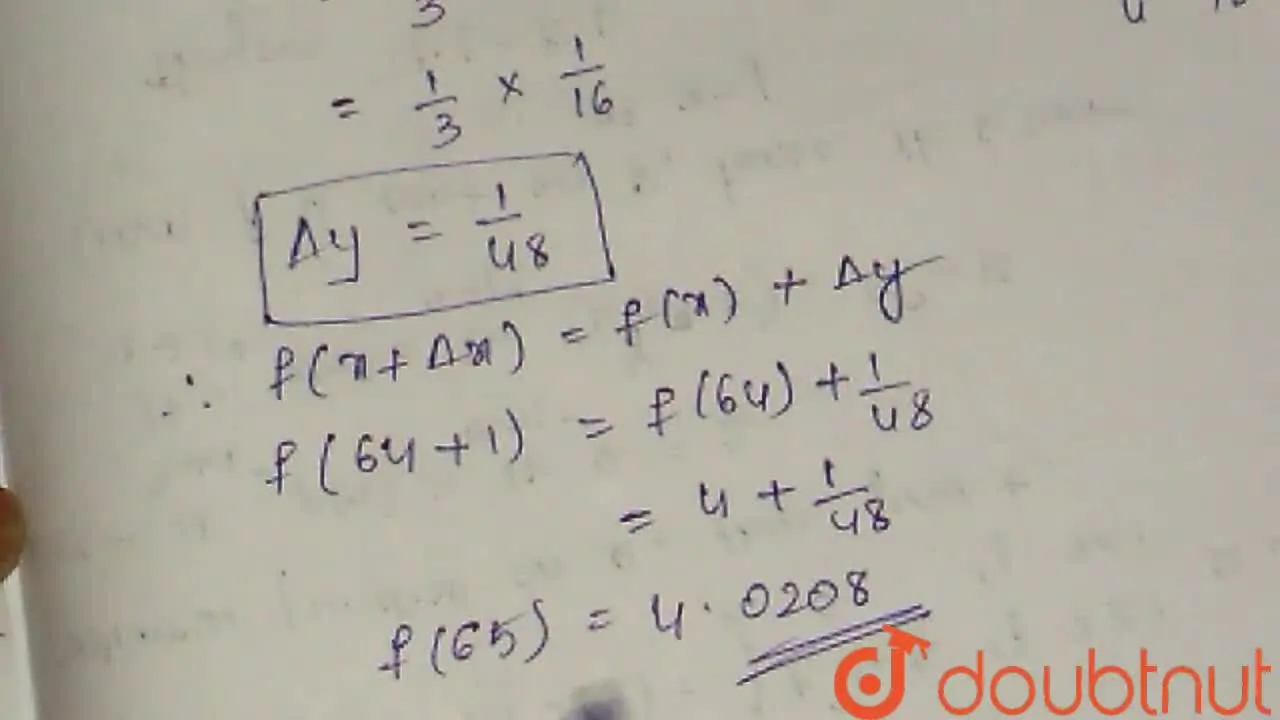 3
= 1/3 × 1/16
Δy = 1/48
∴ f(x+Δx) = f(x) + Δy
f(64+1) = f(64) + 1/48
= 4 + 1/48
f(65) = 4.0208
doubtnut